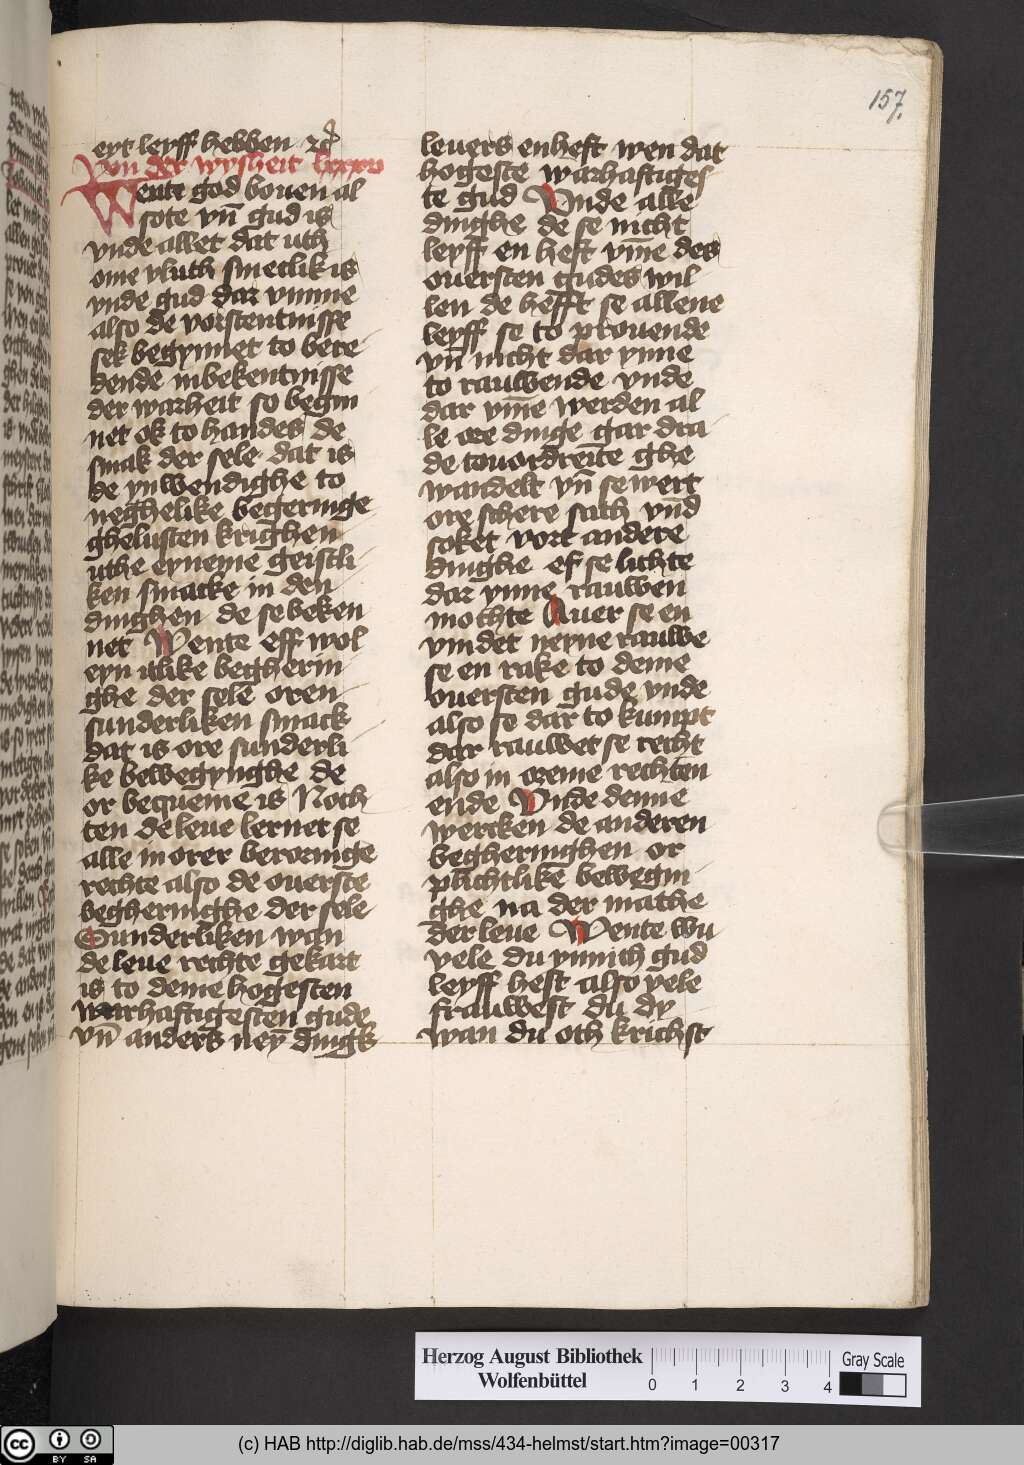 157.
eyt leyff hebben ⁊c̃
Von der wysheit lxxxv
Wente god bouen al
sote vn̄ gud is
vnde allet dat uth
ome vluth smetlik is
vnde gud dar vmme
also de vorstentnisse
sek begynnet to bere
dende in bekentnisse
der warheit so begin
net ok to handes de
smak der sele dat is
de ynwendighe to
neghelike begeringe
ghelusten krighen
uthe eyneme geistli
ken smacke in den
dinghen de se beken
net Wente eff wol
eyn itlike begherin
ghe der sele oren
sunderliken smack
dat is ore sunderli
ke bewegynghe de
or bequeme is Noch
ten de leue lernet se
alle in orer beroringe
rechte also de ouerste
begheringhe der sele
Sunderliken wan
de leue rechte gekart
is to deme hogesten
warhaftigesten gude
vn̄ anders ney dingk
leuers en heft wen dat
hogeste warhaftiges
te gud Vnde alle
dinghe de se nicht
leyff en heft vm̄e des
ouersten gudes wil
len de hefft se allene
leyff se to prouende
vn̄ nicht dar ynne
to rauwende vnde
dar vm̄e werden al
le ore dinge gar dra
de to uordreite ghe
wandelt vn̄ se wert
ore schere sath vnd
soket vort andere
dinghe ef se lichte
dar ynne rauwen
mochte Auer se en
vindet neyne rauwe
se en rake to deme
ouersten gude vnde
also se dar to kumpt
dar rauwet se recht
also in oreme rechten
ende Vnde denne
wercken de anderen
begheringhen or
plichtlikē bewegin
ghe na der mathe
der leue Wente wu
vele du ynnich gud
leyff hest also vele
frauwest du dy
wan du oth krichst
Herzog August Bibliothek
Wolfenbüttel
0 1 2 3 4
Gray Scale
(c) HAB http://diglib.hab.de/mss/434-helmst/start.htm?image=00317
cc BY SA